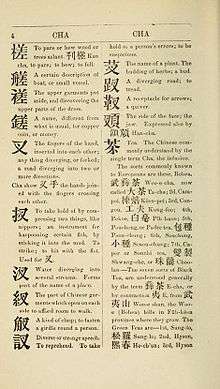 4
CHA
CHA
槎 To pare or hew wood or
trees aslant.
cha, to pare, to hew; to fell.
A certain description of
boat, or small vessel.
The upper garments put
aside, and discovering the
upper parts of the dress.
A name, different from
what is usual, for copper
coin, or money.
叉 The fingers of the hand,
inserted into each others;
any thing diverging, or forked;
a road diverging into two or
more directions.
Cha show 叉手 the hands join-
ed with the fingers crossing
each other.
扠 To take hold of by com-
pressing two things, like
nippers; an instrument for
harpooning certain fish, by
sticking it into the mud. To
strike; to hit with the fist.
Used for 叉
汊 Water diverging into
several streams. Forms
part of the name of a place.
衩 The part of Chinese gar-
ments which open on each
side to afford room to walk.
A kind of clasp; to fasten
a girdle round a person.
Diverse or strange speech.
To reprehend. To take
hold on a person's errors; to be
suspicious.
芆 The name of a plant. The
budding of herbs; a bud.
A diverging road; to
tread.
A receptacle for arrows;
a quiver.
The side of the face; the
jaw. Expressed also by
Han-cha.
茶 Tea. The Chinese common-
ly understand by the
single term Cha, the infusion.
The sorts commonly known
to Europeans are these, Bohea,
武彝茶 Woo-e-cha, now
called 大茶 Ta-cha; 2d, Con-
gou, Kung-foo; 4th,
Pekoe, 白毫 Pih-haou; 5th,
Pouchong, or Padre, 包種
Paou-chung; 6th, Souchong,
小種 Seaou-chung; 7th, Ca-
per or Sonchi, 雙製
Shwang-che, or 珠蘭
lan.—The seven sorts of Black
Tea, are understood by the
term 彝茶 E-cha, or
by contraction 夷 E, 武
夷山 Woo-e shan, the Woo-e
(Bohea) hills in Fŭh-këen
province where they grow. The
Green Teas are—1st, Sung-lo,
松蘿 Sung-lo; 2d, Hyson
熙春 He-ch'un; 3rd, Hyson